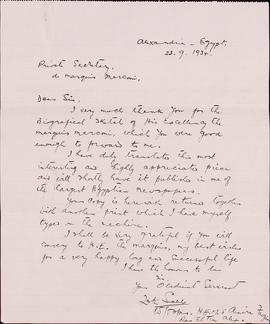 Alexandria - Egypt,
23.9.1934.
Privat Secretary,
de Marquis Marconi,
Dear Sir,
I very much thank you for the
Biografical Sketch of His Excellency the
Marquis Marconi, which You were good
enough to forward to me.
I have duly translated this most
interesting and highly appreciated piece
and will shortly have it published in one of
the largest Egyptian newspapers.
Your copy is herewith returned together
with another print which I have myself
typed on the machine.
I shall be very grateful if you will
convey to H.E. the Marquis, my best wishes
for a very happy long and successful life
I have the honour to be
Sir
Your Obedient Servant
Ras El Tin Alex.